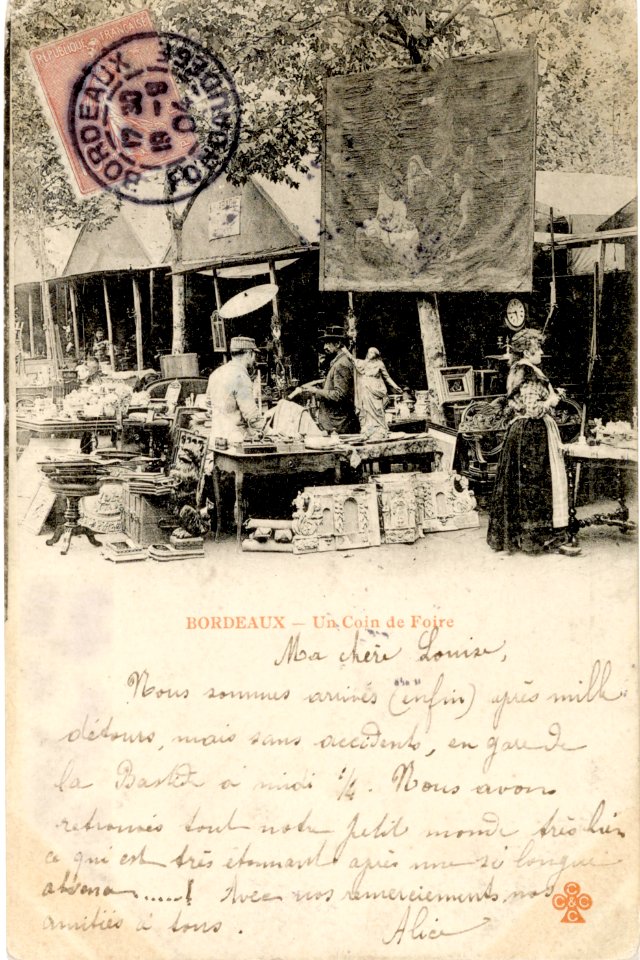 REPUBLIQUE FRANÇAISE
BORDEAUX
BORDEAUX – Un Coin de Foire
Ma chère Louise,
Nous sommes arrivés (enfin) après mille
détours, mais sans accidents, en gare de
la Bastide à midi 1/4. Nous avons
retrouvés tout notre petit monde très bien
ce qui est très étonnant après une si longue
absence.....! Avec nos remerciements, nos
amitiés à tous. Alice
C C C C